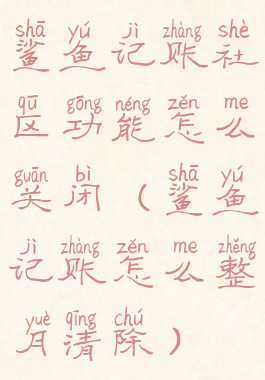 shā yú jì zhàng shè
鲨鱼记账社
qū gōng néng zěn me
区功能怎么
guān bì shā yú
关闭（鲨鱼
jì zhàng zěn me zhěng
记账怎么整
yuè qīng chú
月清除）